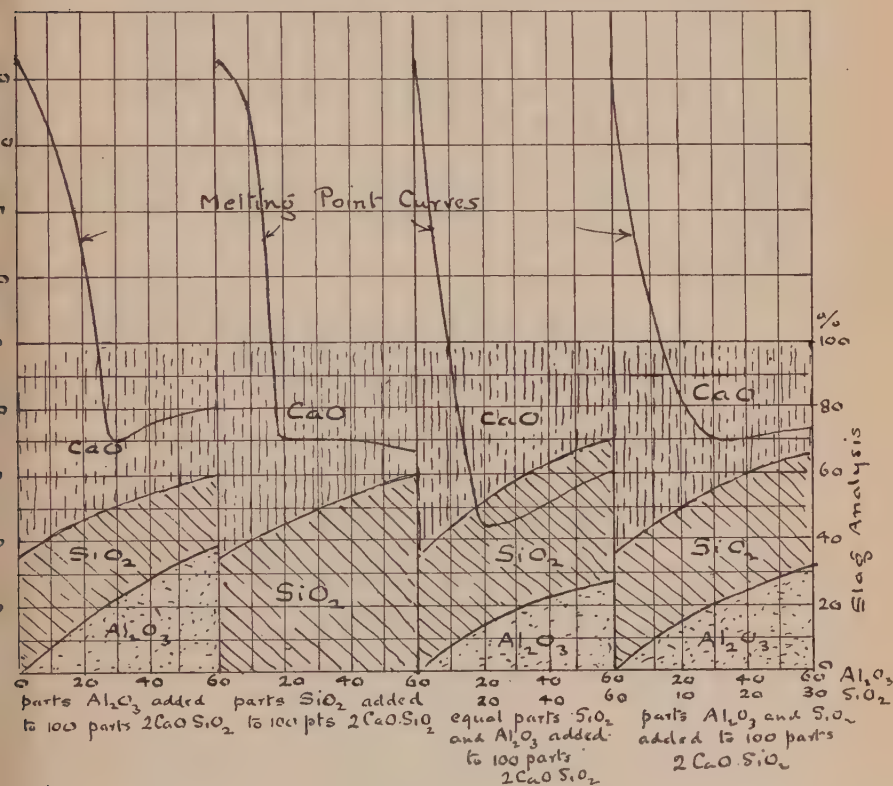 Melting Point Curves
%
100
CaO
CaO
CaO
CaO
80
60
SiO₂
SiO₂
SiO₂
SiO₂
40
Al₂O₃
Al₂O
Al₂O₃
20
0
Slag Analysis
0 20 40 60 20 40 60 20 40 60 Al₂O₃
20 40 60 10 20 30 SiO₂
parts Al₂O₃ added
to 100 parts 2CaO SiO₂
parts SiO₂ added
to 100 pts 2CaO.SiO₂
equal parts SiO₂
and Al₂O₃ added
to 100 parts
2CaO SiO₂
parts Al₂O₃ and SiO₂
added to 100 parts
2CaO.SiO₂